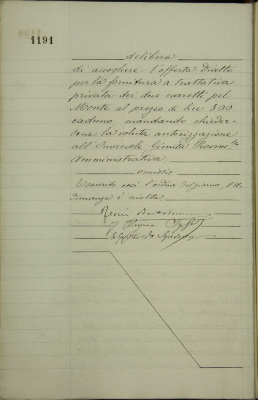 1191
delibera
di accogliere l'offerta Dratto
per la fornitura a trattativa
privata dei due carretti pel
Monte al prezzo di lire 300
caduno, mandando chieder-
sene la voluta autorizzazione
all'Onorevole Giunta Provin.le
Amministrativa
omissis
Esaurito così l'ordine del giorno, l'A-
dunanza è sciolta.